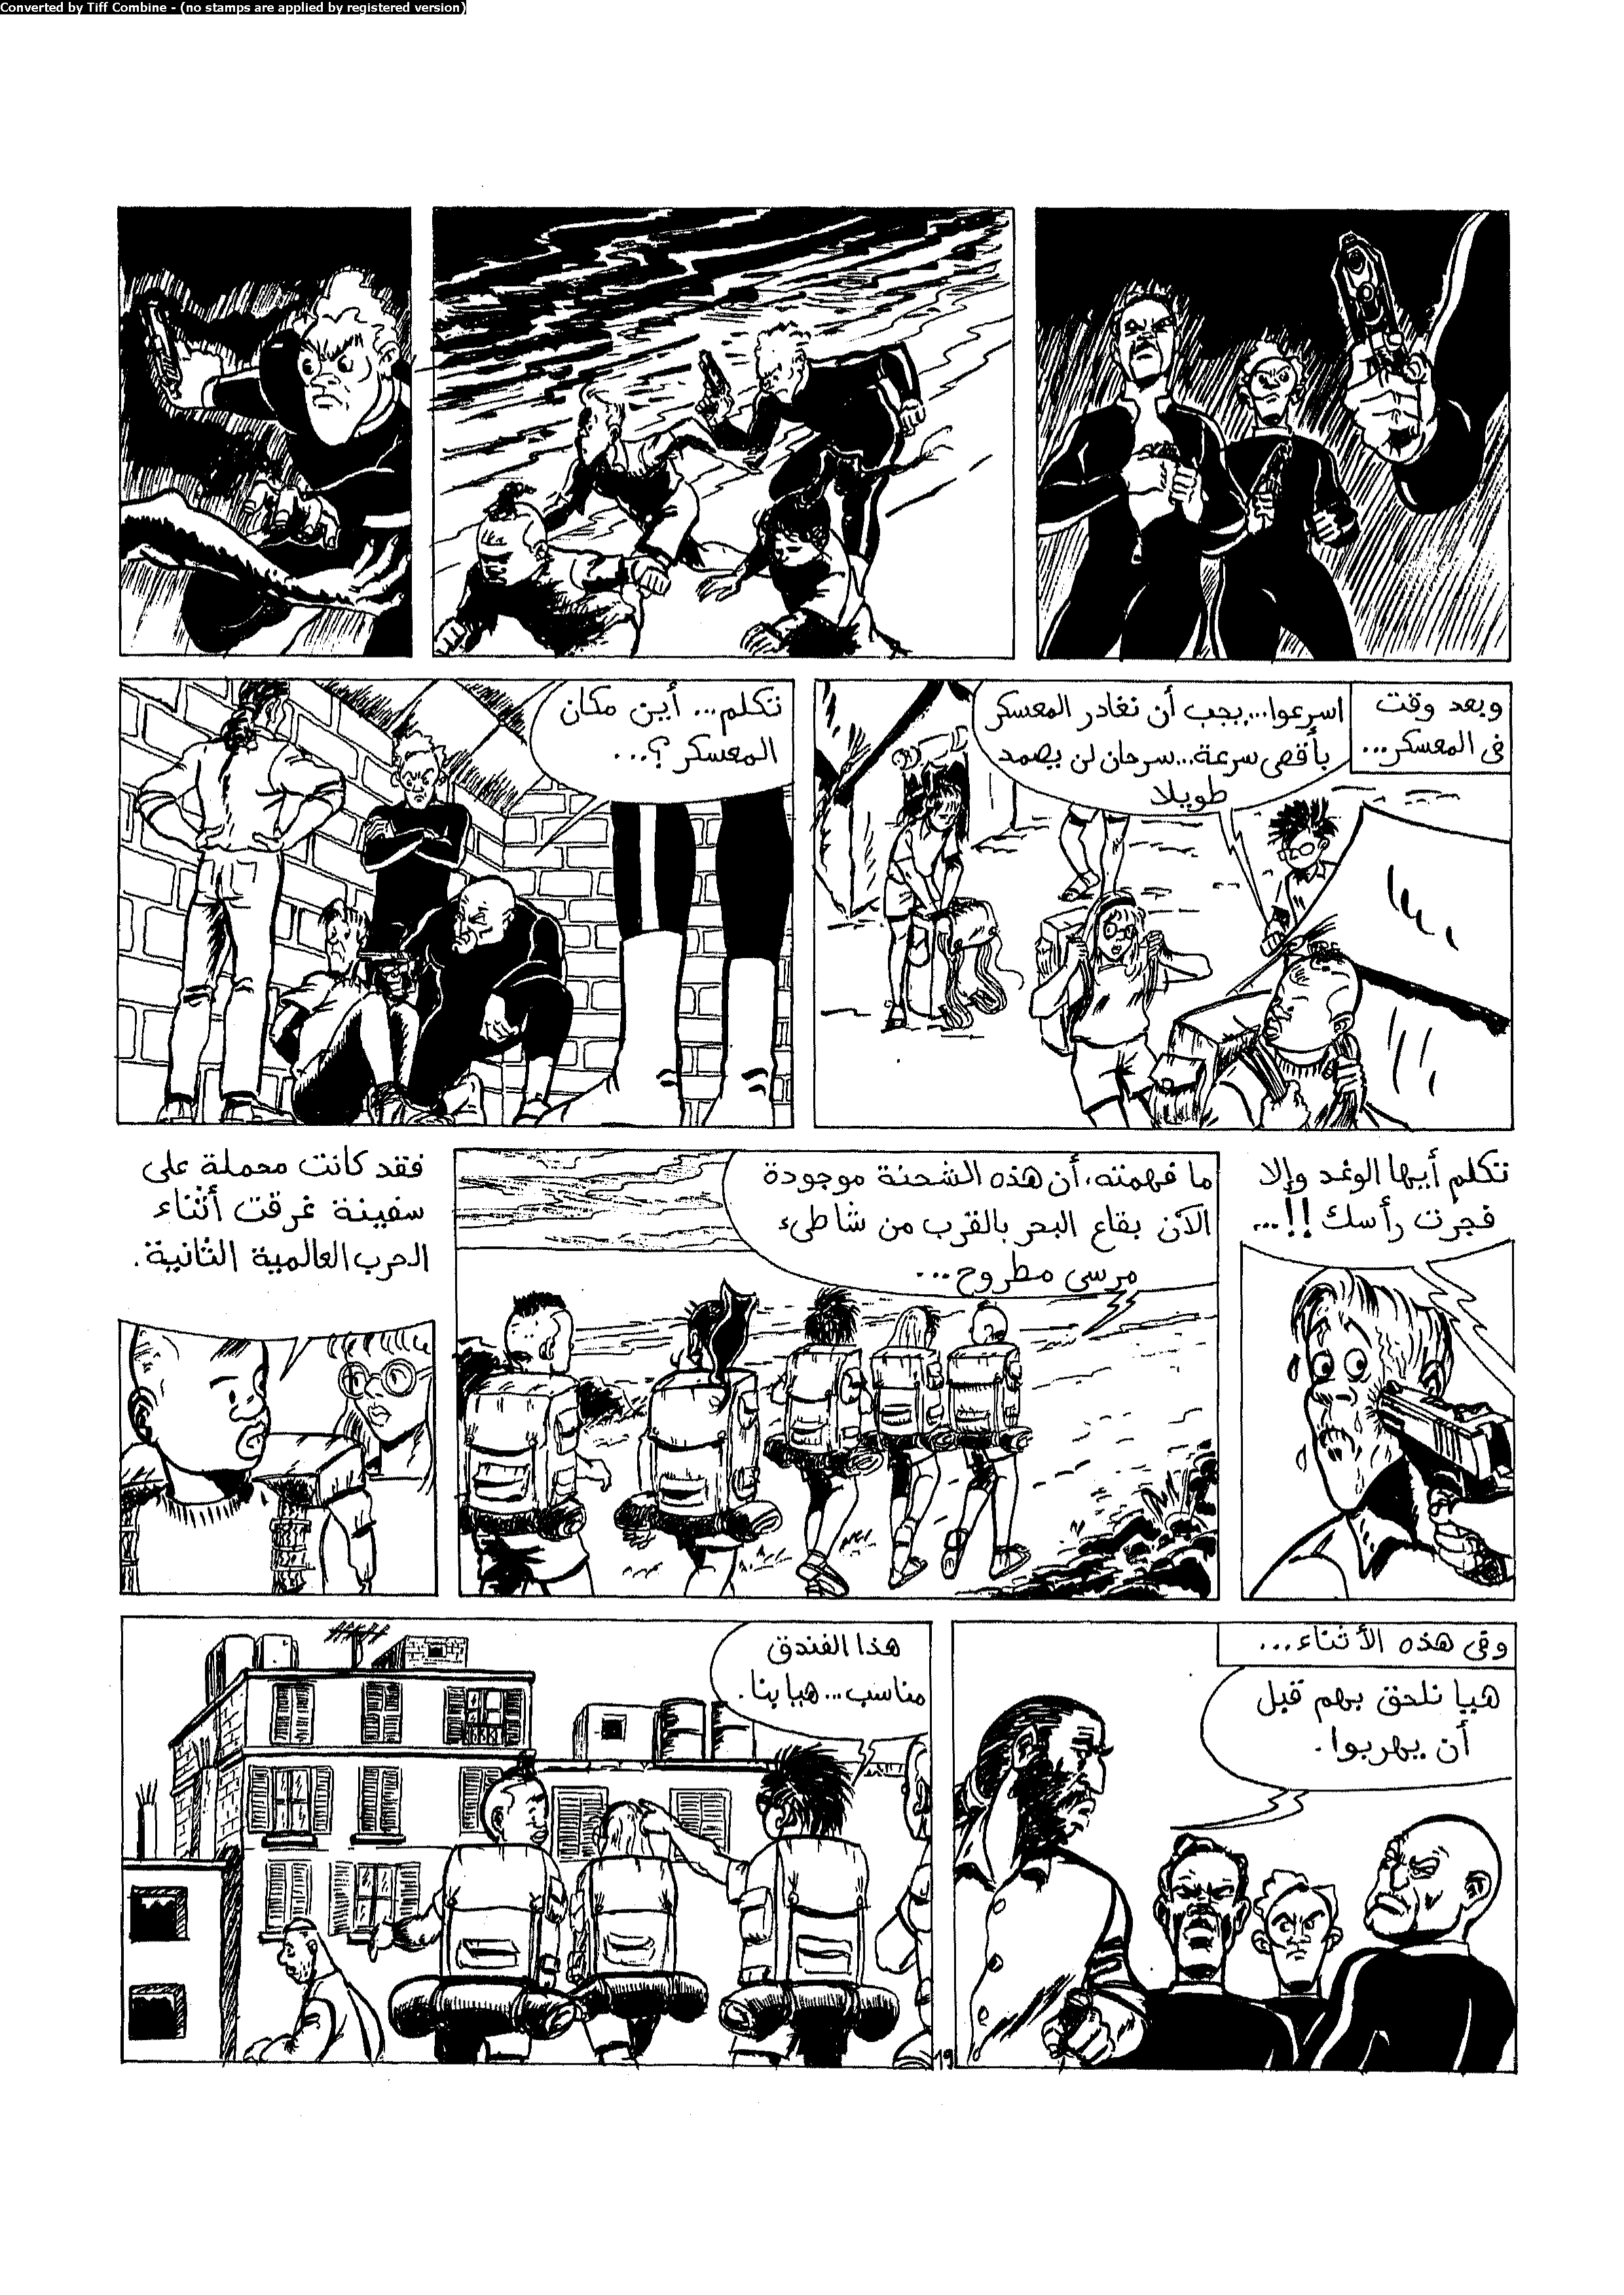 Converted by Tiff Combine - (no stamps are applied by registered version)
وبعد وقت
فى المعسكر...
اسرعوا...يجب أن نغادر المعسكر
بأقصى سرعة...سرحان لن يصمد
طويلا
تتكلم... أين مكان
المعسكر؟...
تتكلم أيها الوغد وإلا
فجرت رأسك!!...
ما فهمته، أن هذه الشحنة موجودة
الآن بقاع البحر بالقرب من شاطىء
مرسى مطروح...
فقد كانت محملة على
سفينة غرقت أثناء
الحرب العالمية الثانية.
وفى هذه الأثناء...
هيا نلحق بهم قبل
أن يهربوا.
هذا الفندق
مناسب...هيا بنا.
19